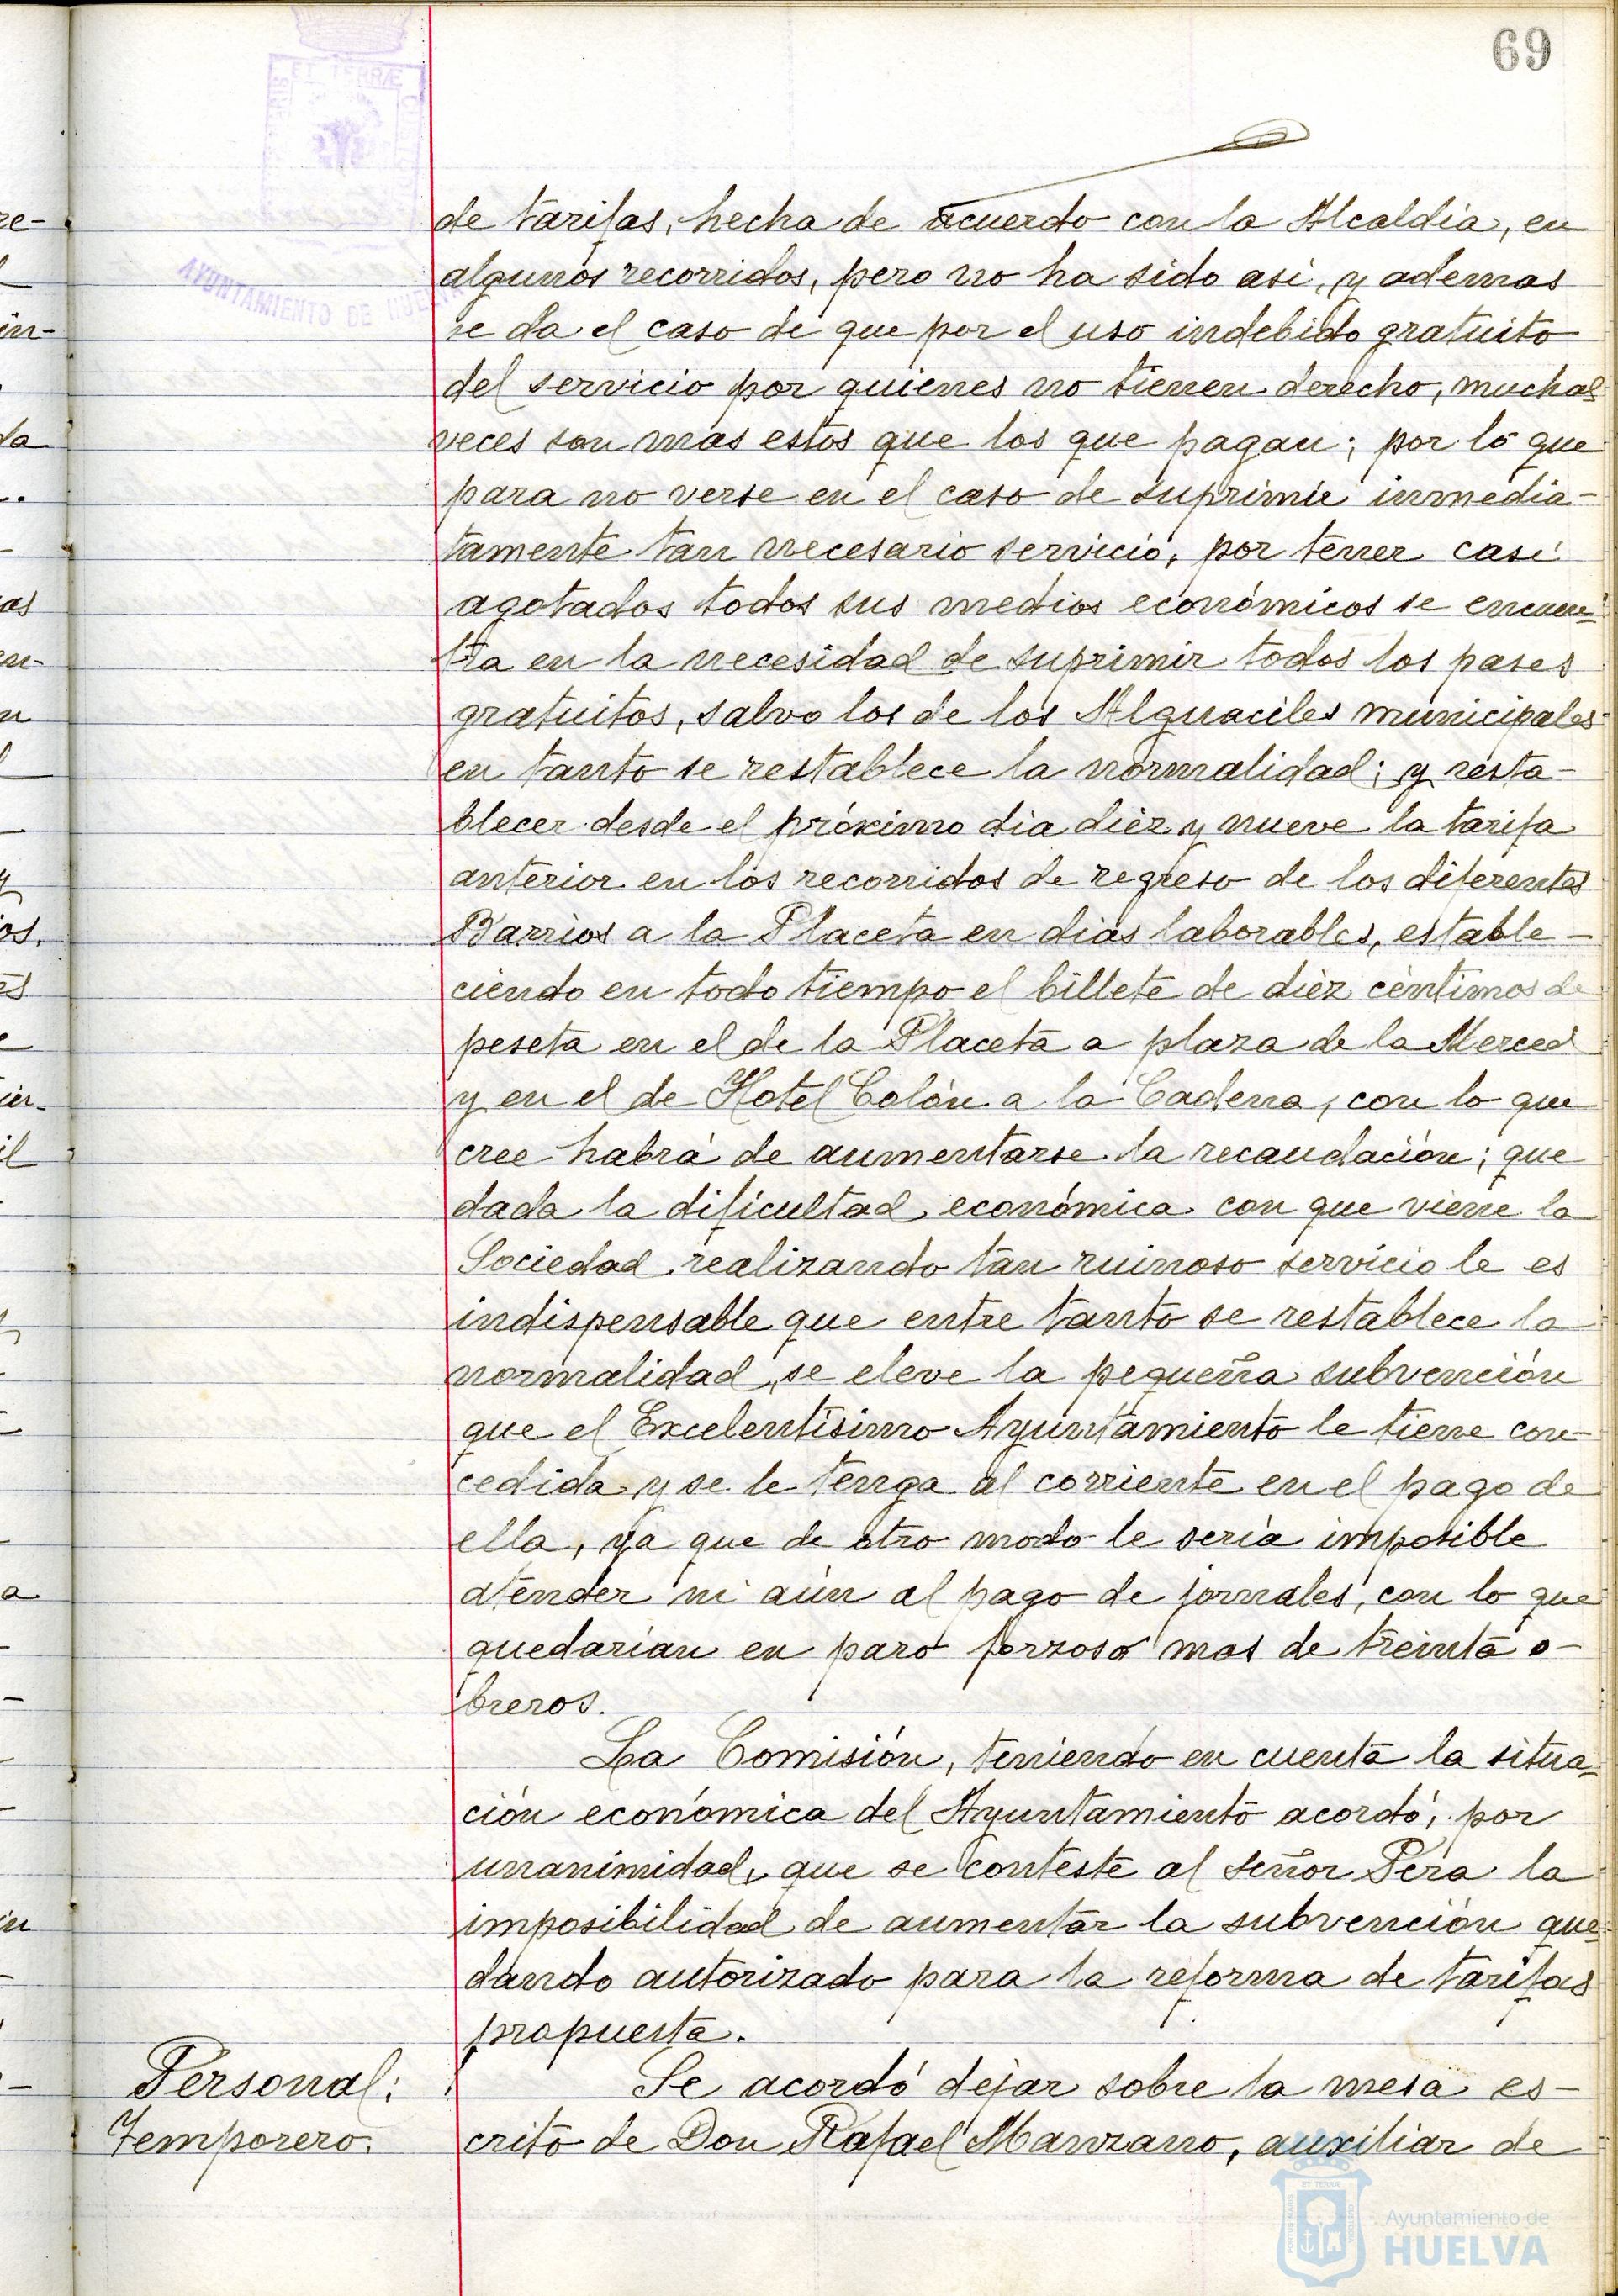 69
AYUNTAMIENTO DE
de tarifas, hecha de acuerdo con la Alcaldia, en
algunos recorridos, pero no ha sido asi, y ademas
se da el caso de que por el uso indebido gratuito
del servicio por quienes no tienen derecho, muchas
veces son mas estos que los que pagan; por lo que
para no verse en el caso de suprimir inmedia-
tamente tan necesario servicio, por tener casi
agotados todos sus medios económicos se encuen-
tra en la necesidad de suprimir todos los pases
gratuitos, salvo los de los Alguaciles municipales
en tanto se restablece la normalidad; y resta-
blecer desde el próximo dia diez y nueve la tarifa
anterior en los recorridos de regreso de los diferentes
Barrios a la Placeta en dias laborables, estable-
ciendo en todo tiempo el billete de diez céntimos de
peseta en el de la Placeta a plaza de la Merced
y en el de Hotel Colón a la Cadena, con lo que
cree habrá de aumentarse la recaudación; que
dada la dificultad económica con que viene la
Sociedad realizando tan ruinoso servicio le es
indispensable que entre tanto se restablece la
normalidad, se eleve la pequeña subvención
que el Excelentisimo Ayuntamiento le tiene con-
cedida y se le tenga al corriente en el pago de
ella, ya que de otro modo le seria imposible
atender ni aún al pago de jornales, con lo que
quedarian en paro forzoso mas de treinta o-
breros.
La Comisión, teniendo en cuenta la situa-
ción económica del Ayuntamiento acordó, por
unanimidad, que se conteste al señor Pera la
imposibilidad de aumentar la subvención que-
dando autorizado para la reforma de tarifas
propuesta.
Personal:
Temporero.
Se acordó dejar sobre la mesa es-
crito de Don Rafael Manzano, auxiliar de
Ayuntamiento de
HUELVA